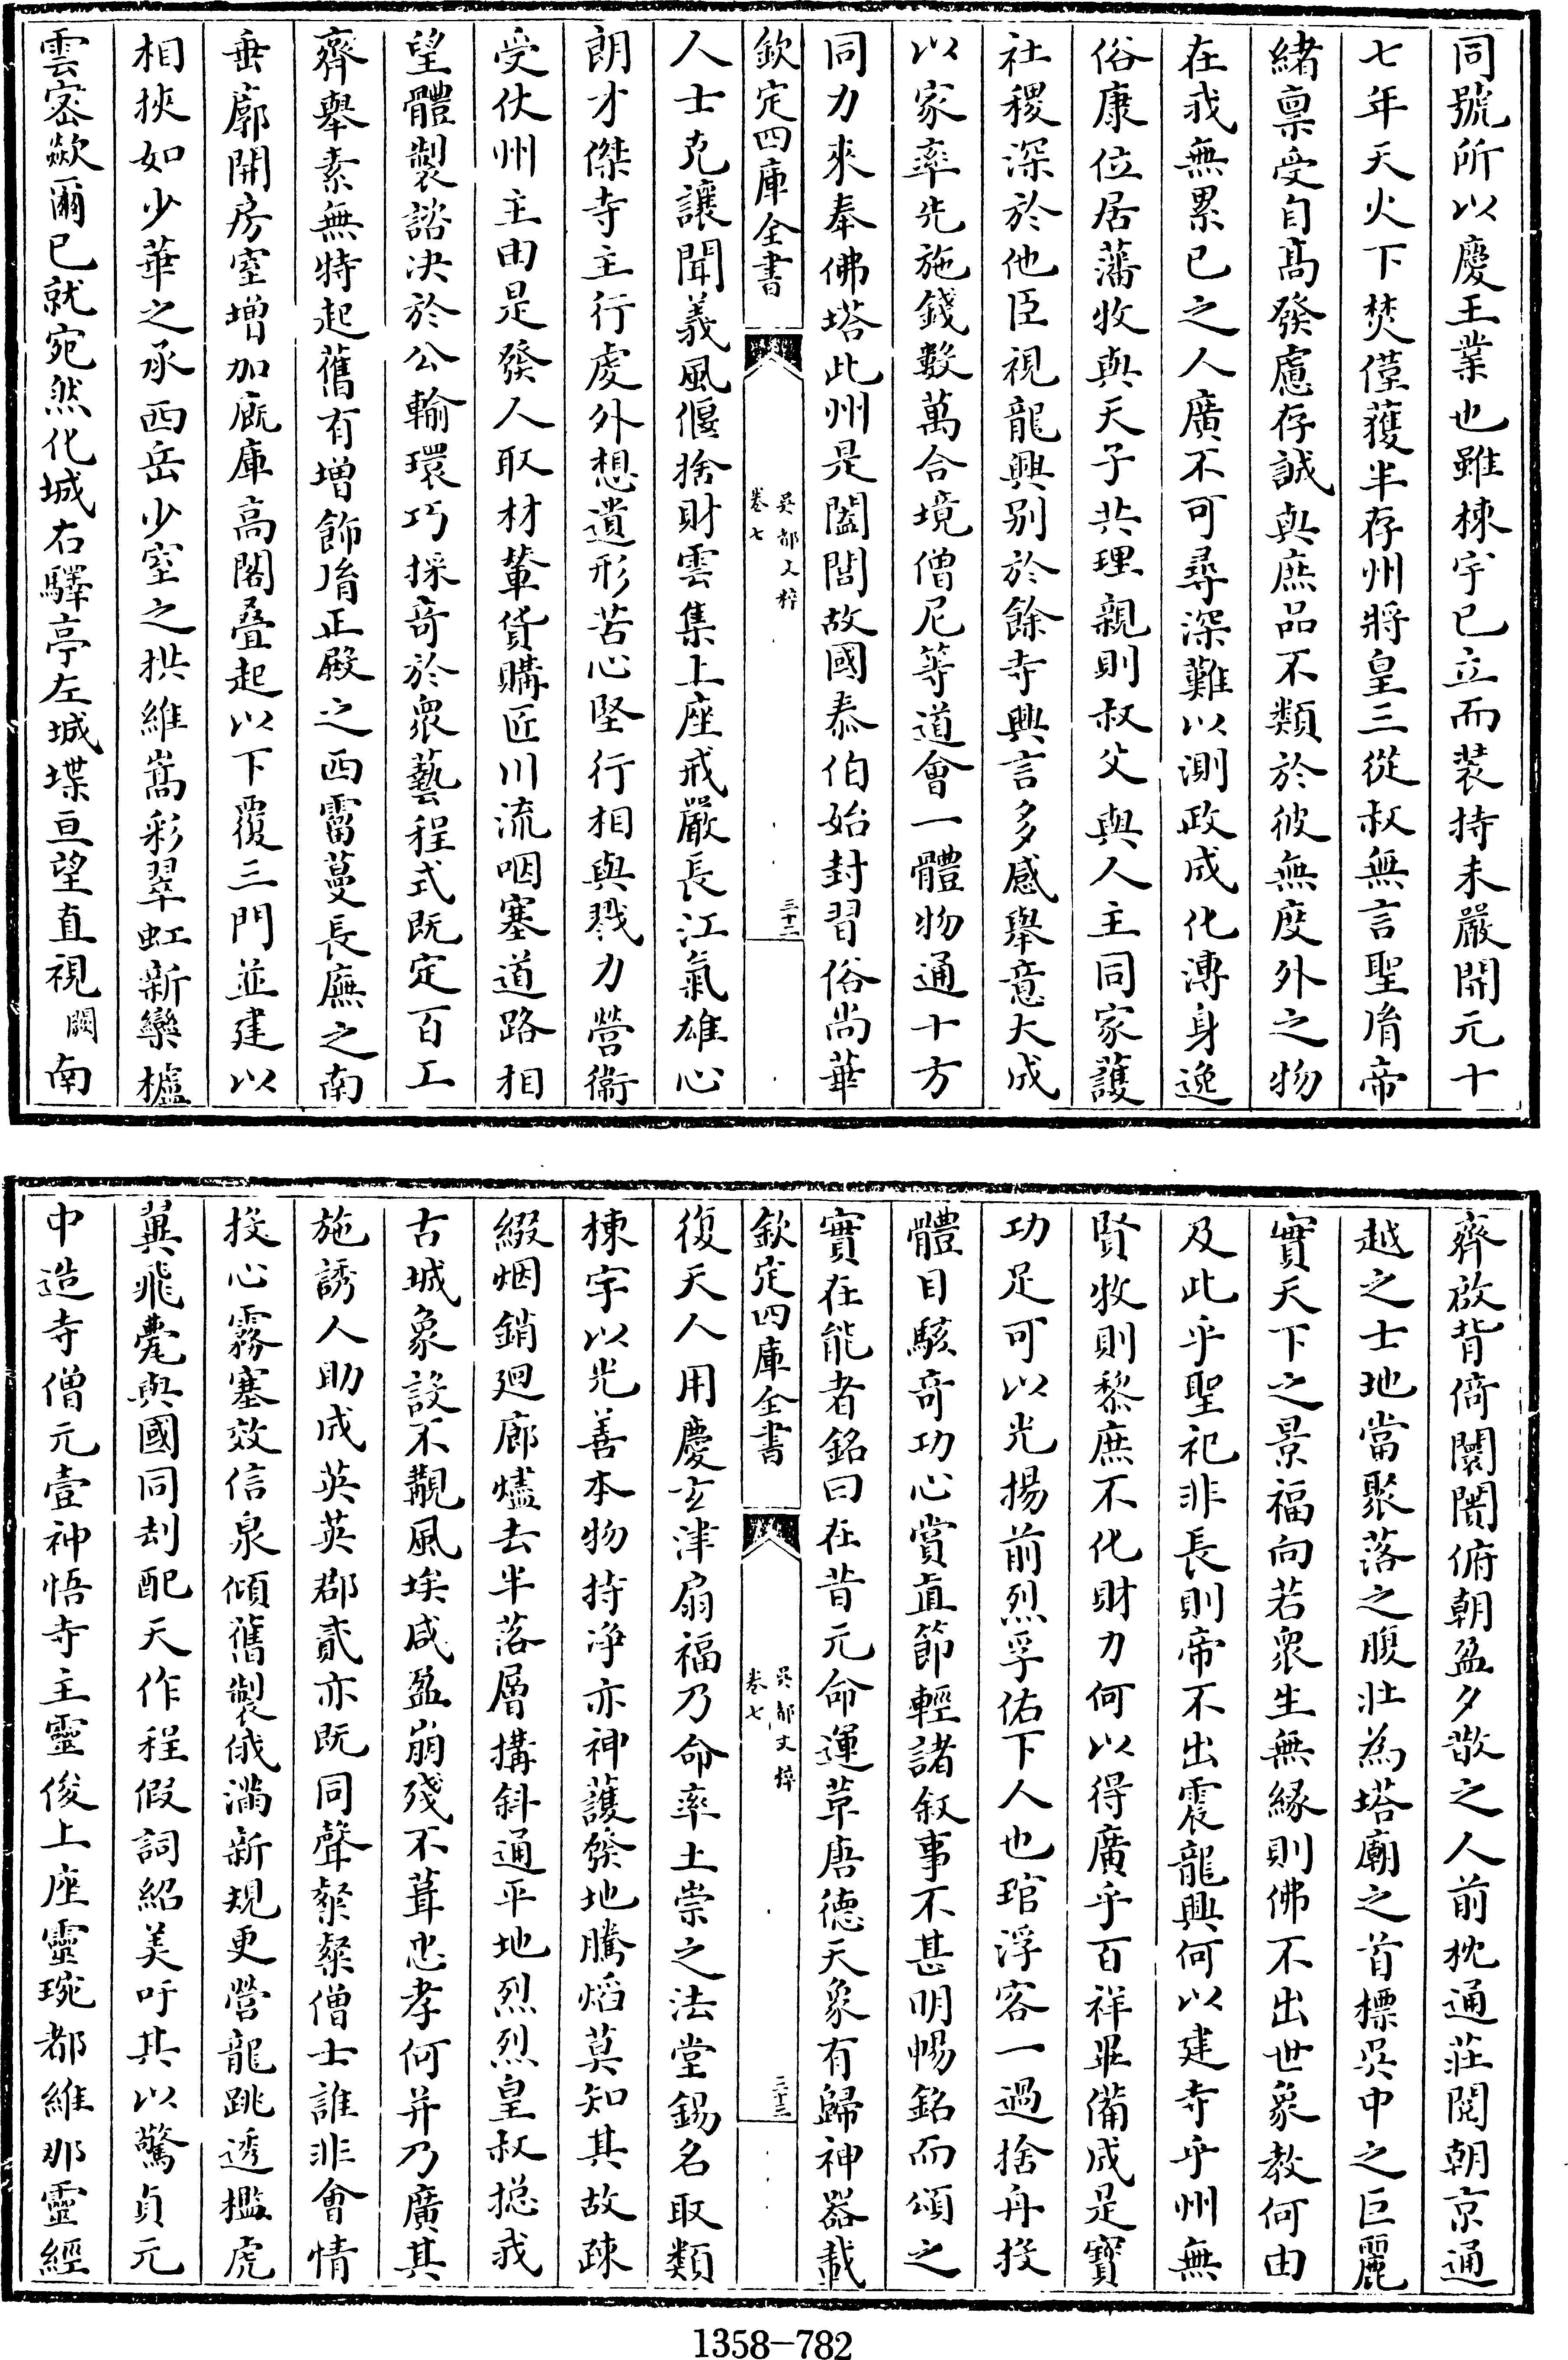 同號所以慶王業也雖棟宇已立而裝持未嚴開元十
七年天火下焚僅獲半存州將皇三從叔無言聖胤帝
緒禀受自髙發慮存誠與庶品不類於彼無度外之物
在我無累已之人廣不可尋深難以測政成化溥身逸
俗康位居藩牧與天子共理親則叔父與人主同家護
社稷深於他臣視龍興别於餘寺興言多感舉意大成
以家率先施錢數萬合境僧尼等道會一體物通十方
同力來奉佛塔此州是闔閭故國泰伯始封習俗尚華
欽定四庫全書
吳都文粹
卷七
三十二
人士克讓聞義風偃捨財雲集上座戒嚴長江氣雄心
朗才傑寺主行虔外想遺形苦心堅行相與戮力營衞
受伏州主由是發人取材輦貨購匠川流咽塞道路相
望體製諮决於公輸環巧採竒於衆藝程式既定百工
齊舉素無特起舊有增飾胤正殿之西霤蔓長廡之南
垂廓開房室增加廐庫高閣叠起以下覆三門並建以
相挾如少華之承西岳少室之拱維嵩彩翠虹新欒櫨
雲宻歘爾已就宛然化城右驛亭左城堞亘望直視闕南
齊啟背倚闤闠俯朝盈夕散之人前枕通莊閲朝京通
越之士地當聚落之腹壯為塔廟之首標吳中之巨麗
實天下之景福向若衆生無縁則佛不出世象教何由
及此乎聖祀非長則帝不出震龍興何以建寺乎州無
賢牧則黎庶不化財力何以得廣乎百祥畢備成是寳
功足可以光揚前烈孚佑下人也琯浮客一過捨舟投
體目駭竒功心賞直節輕諸叙事不甚明暢銘而頌之
實在能者銘曰在昔元命運草唐德天象有歸神器載
欽定四庫全書
吳都文粹
卷七
三十三
復天人用慶玄津扇福乃命率土崇之法堂錫名取類
棟宇以光善本物持浄亦神護發地騰熖莫知其故疎
綴烟銷廻廊燼去半落層搆斜通平地烈烈皇叔揔我
古城象設不覩風埃咸盈崩殘不葺忠孝何并乃廣其
施誘人助成英英郡貳亦既同聲粲粲僧士誰非會情
投心霧塞效信泉傾舊製俄滿新規更營龍跳透檻虎
䕃飛甍與國同刦配天作程假詞紹美吁其以驚貞元
中造寺僧元壹神悟寺主靈俊上座靈琬都維那靈經
1358-782